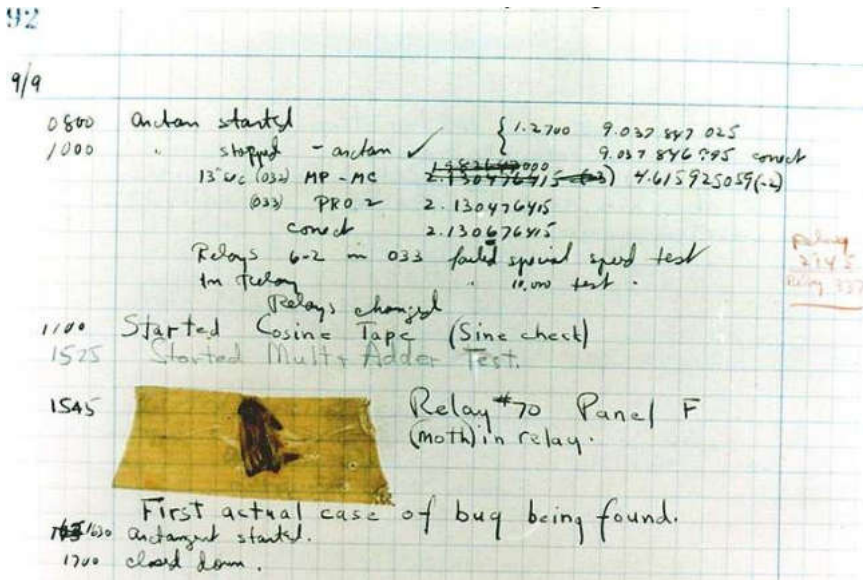 92
9/9
0800 Antan started { 1.2700 9.037 847 025
1000 " stopped - antan ✓ 9.037 846 795 conect
13" uc (032) MP - MC 2.130476415 4.615925059(-2)
(033) PRO 2 2.130476415
conect 2.130676415
Relays 6-2 in 033 failed special speed test
in Relay " 10.000 test .
Relays changed
Relay
2145
Relay 337
1100 Started Cosine Tape (Sine check)
1525 Started Mult + Adder Test.
1545 Relay #70 Panel F
(moth) in relay.
First actual case of bug being found.
1630 antangent started.
1700 closed down.